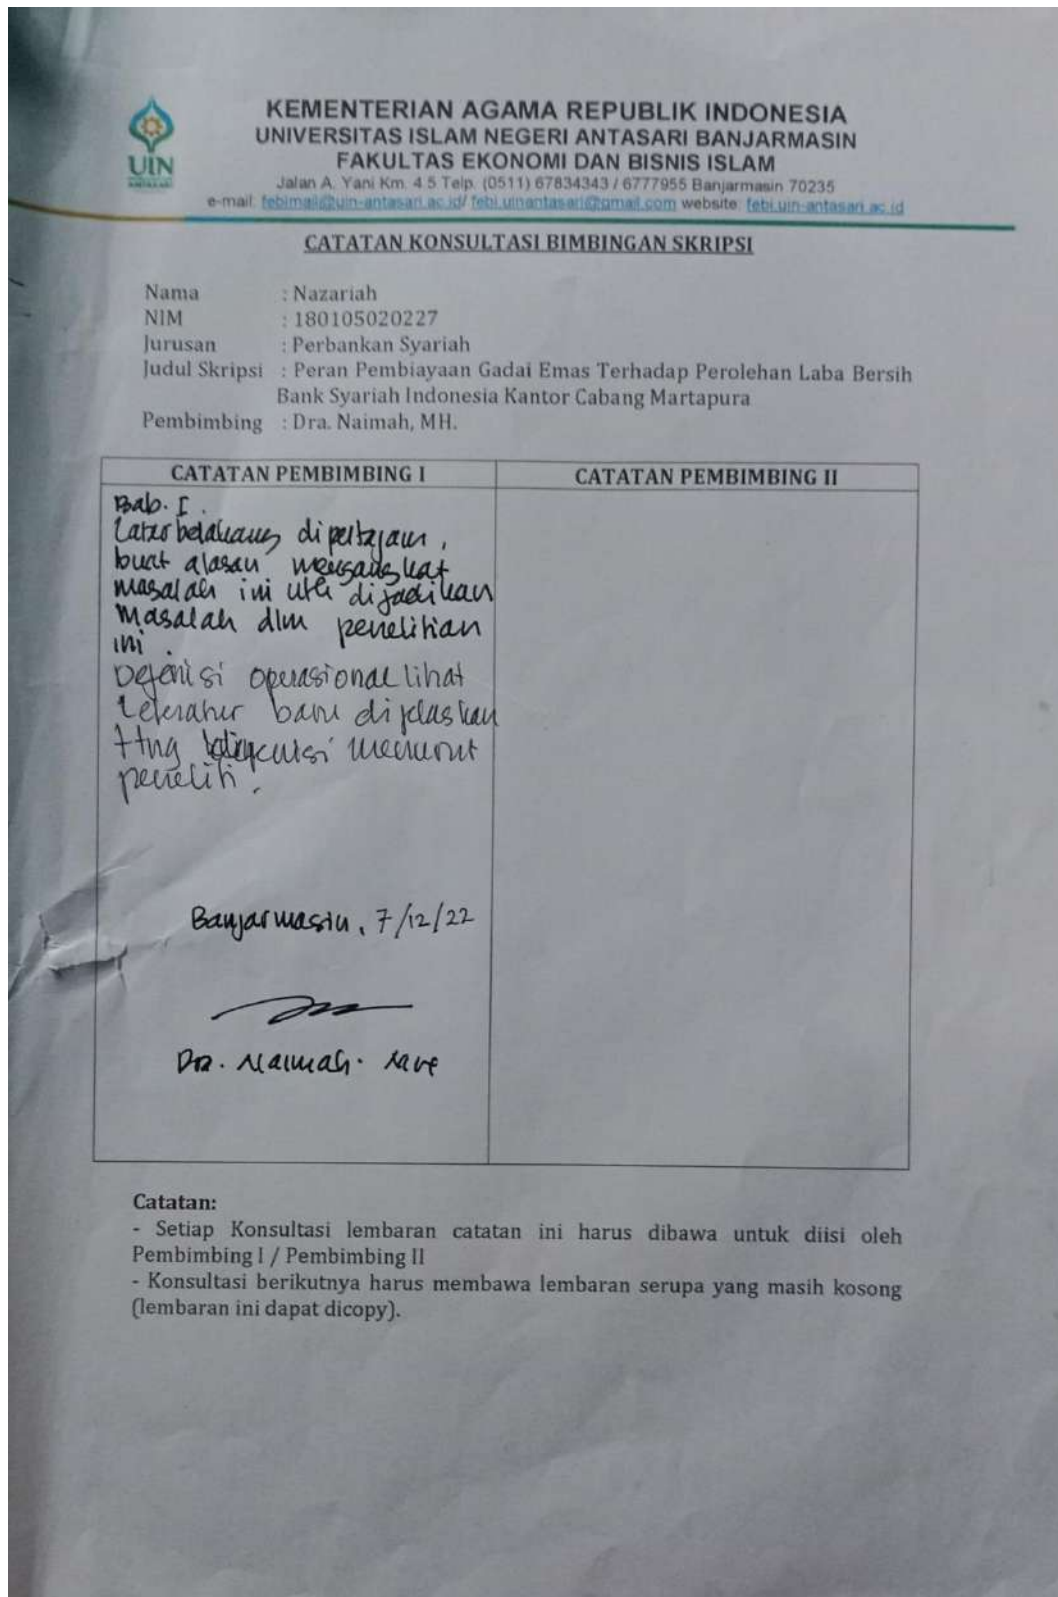 UIN
ANTASARI
KEMENTERIAN AGAMA REPUBLIK INDONESIA
UNIVERSITAS ISLAM NEGERI ANTASARI BANJARMASIN
FAKULTAS EKONOMI DAN BISNIS ISLAM
Jalan A. Yani Km. 4.5 Telp. (0511) 67834343 / 6777955 Banjarmasin 70235
e-mail: febimail@uin-antasari.ac.id/ febi.uinantasari@gmail.com website: febi.uin-antasari.ac.id
CATATAN KONSULTASI BIMBINGAN SKRIPSI
Nama : Nazariah
NIM : 180105020227
Jurusan : Perbankan Syariah
Judul Skripsi : Peran Pembiayaan Gadai Emas Terhadap Perolehan Laba Bersih
Bank Syariah Indonesia Kantor Cabang Martapura
Pembimbing : Dra. Naimah, MH.
CATATAN PEMBIMBING I
Bab. I.
Latar belakang dipertajam,
buat alasan mengangkat
masalah ini utk dijadikan
masalah dlm penelitian
ini.
Defenisi operasional lihat
leteratur baru dijelaskan
ttng menurut
peneliti.
Banjarmasin, 7/12/22
Dra. Naimah.
CATATAN PEMBIMBING II
Catatan:
- Setiap Konsultasi lembaran catatan ini harus dibawa untuk diisi oleh
Pembimbing I / Pembimbing II
- Konsultasi berikutnya harus membawa lembaran serupa yang masih kosong
(lembaran ini dapat dicopy).